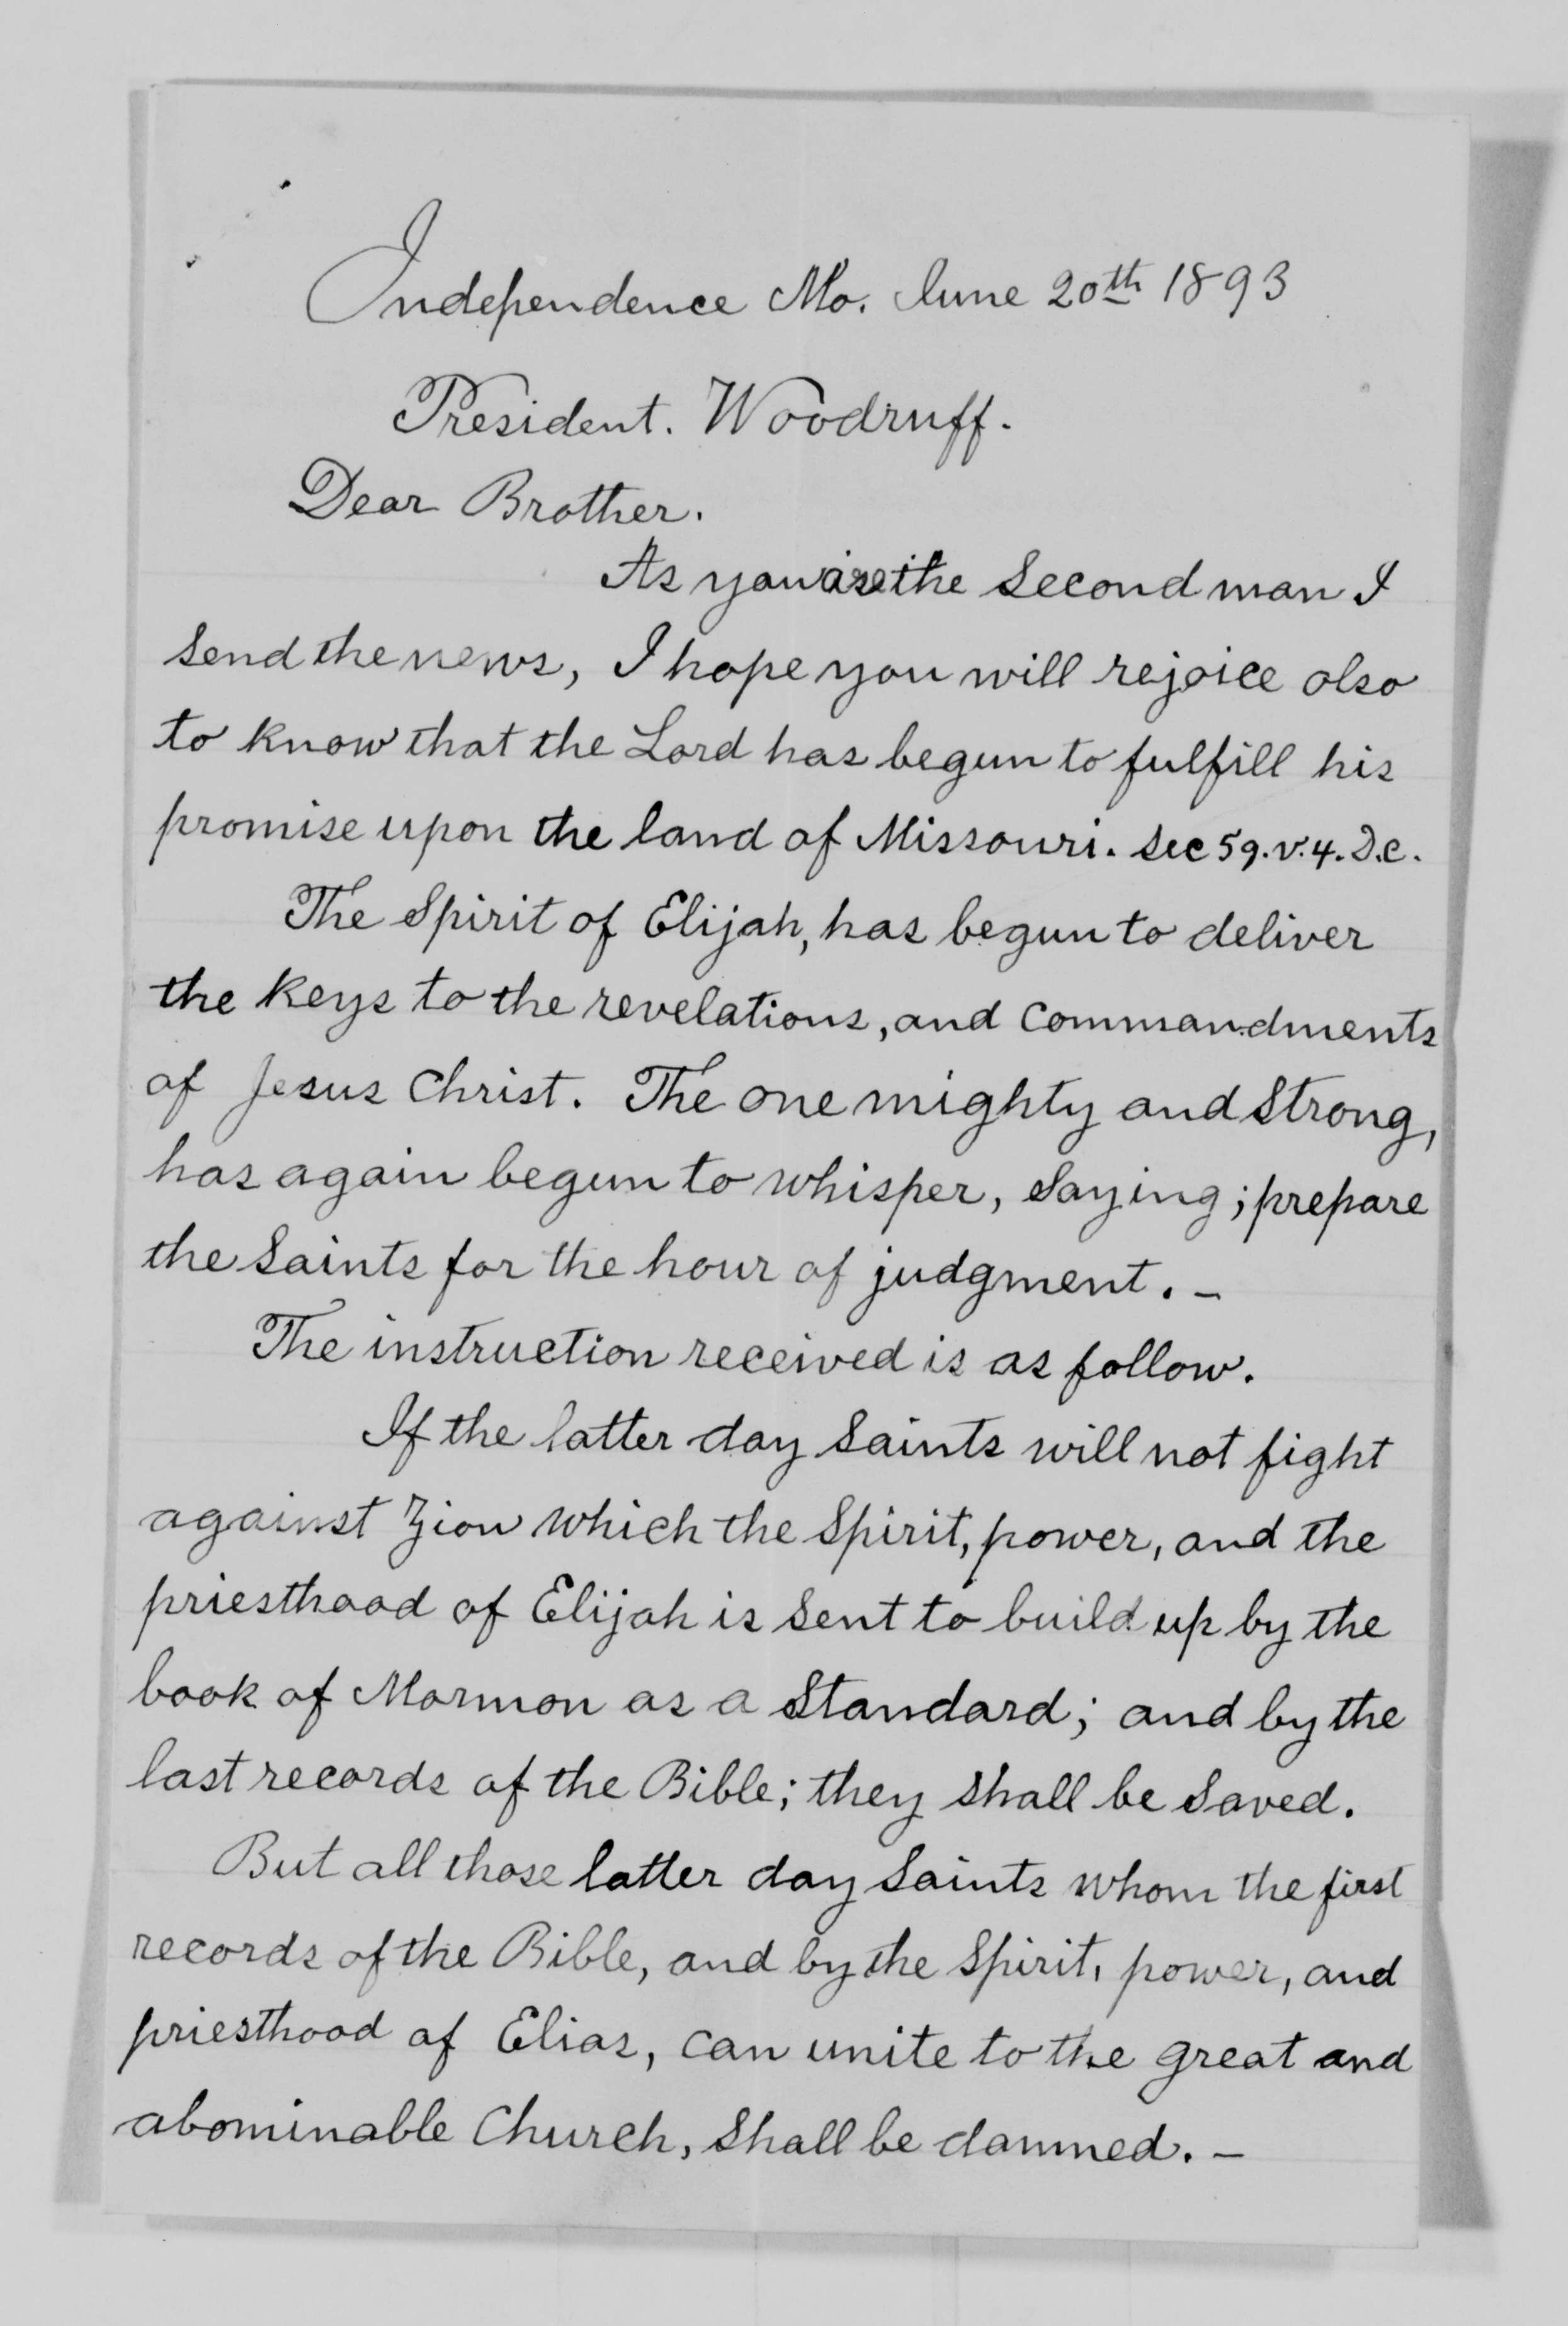 Independence Mo. June 20th 1893
President. Woodruff.
Dear Brother.
As you are the Second man I
Send the news, I hope you will rejoice also
to know that the Lord has begun to fulfill his
promise upon the land of Missouri. Sec 59. v. 4. D.C.
The Spirit of Elijah, has begun to deliver
the Keys to the revelations, and Commandments
of Jesus Christ. The one mighty and Strong,
has again begun to whisper, Saying; prepare
the Saints for the hour of judgment. –
The instruction received is as follow.
If the latter day Saints will not fight
against Zion which the Spirit, power, and the
priesthood of Elijah is Sent to build up by the
book of Mormon as a Standard; and by the
last records of the Bible; they Shall be Saved.
But all those latter day Saints whom the first
records of the Bible, and by the Spirit, power, and
priesthood of Elias, can unite to the great and
abominable Church, Shall be damned. –